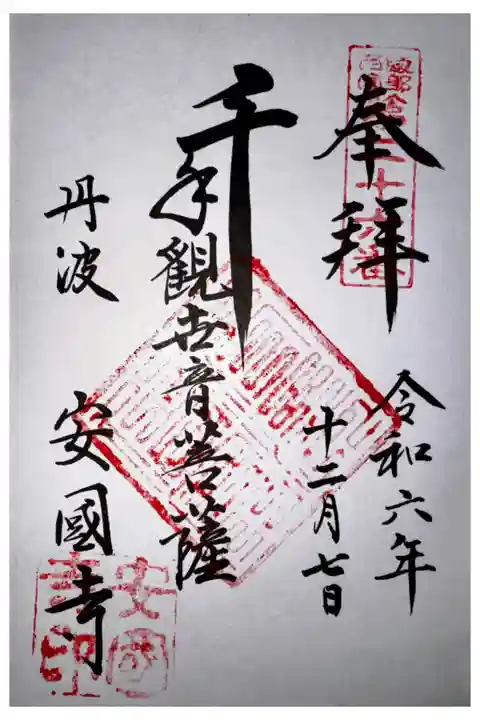 奉拜
令和六年
十二月七日
千手觀世音菩薩
丹波
安國寺
安國寺印